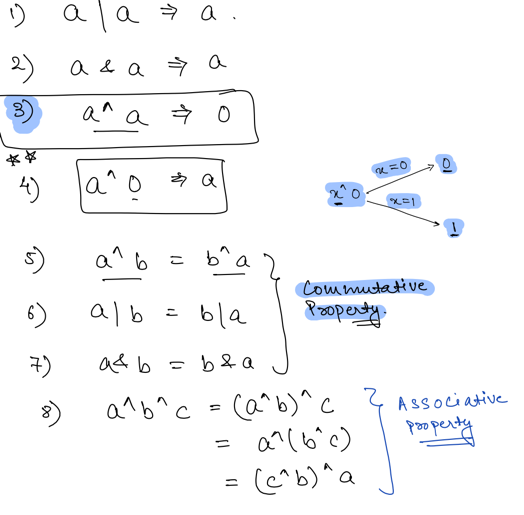 1) a | a ⇒ a.
2) a & a ⇒ a
3) a^ a ⇒ 0
4) a^ 0 ⇒ a
x^ 0
x=0
0
x=1
1
5) a^ b = b^ a
6) a | b = b | a
7) a & b = b & a
Commutative
Property.
8) a^ b^ c = (a^ b)^ c
= a^ (b^ c)
= (c^ b)^ a
Associative
Property